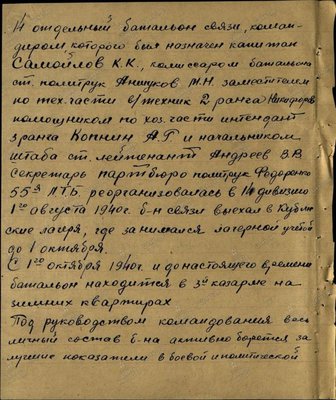 14 отдельный батальон связи, коман-
диром, которого был назначен капитан
Самойлов К.К., комиссаром батальона
ст. политрук Анчуков М.Н. заместителем
по тех. части в/техник 2 ранга Никифоров
помощником по хоз. части интендант
3 ранга Копнин А.Г и начальником
штаба ст. лейтенант Андреев В.В
Секретарь партбюро политрук Федоренко
55-я ЛТБ реорганизовалась в 14 дивизию
1го августа 1940г. б-н связи выехал в
ские лагеря, где занимался лагерной учебой
до 1 октября.
С 1го октября 1940г. и до настоящего времени
батальон находится в 3й казарме на
зимних квартирах
Под руководством командования весь
личный состав б-на активно борется за
лучшие показатели в боевой и политической